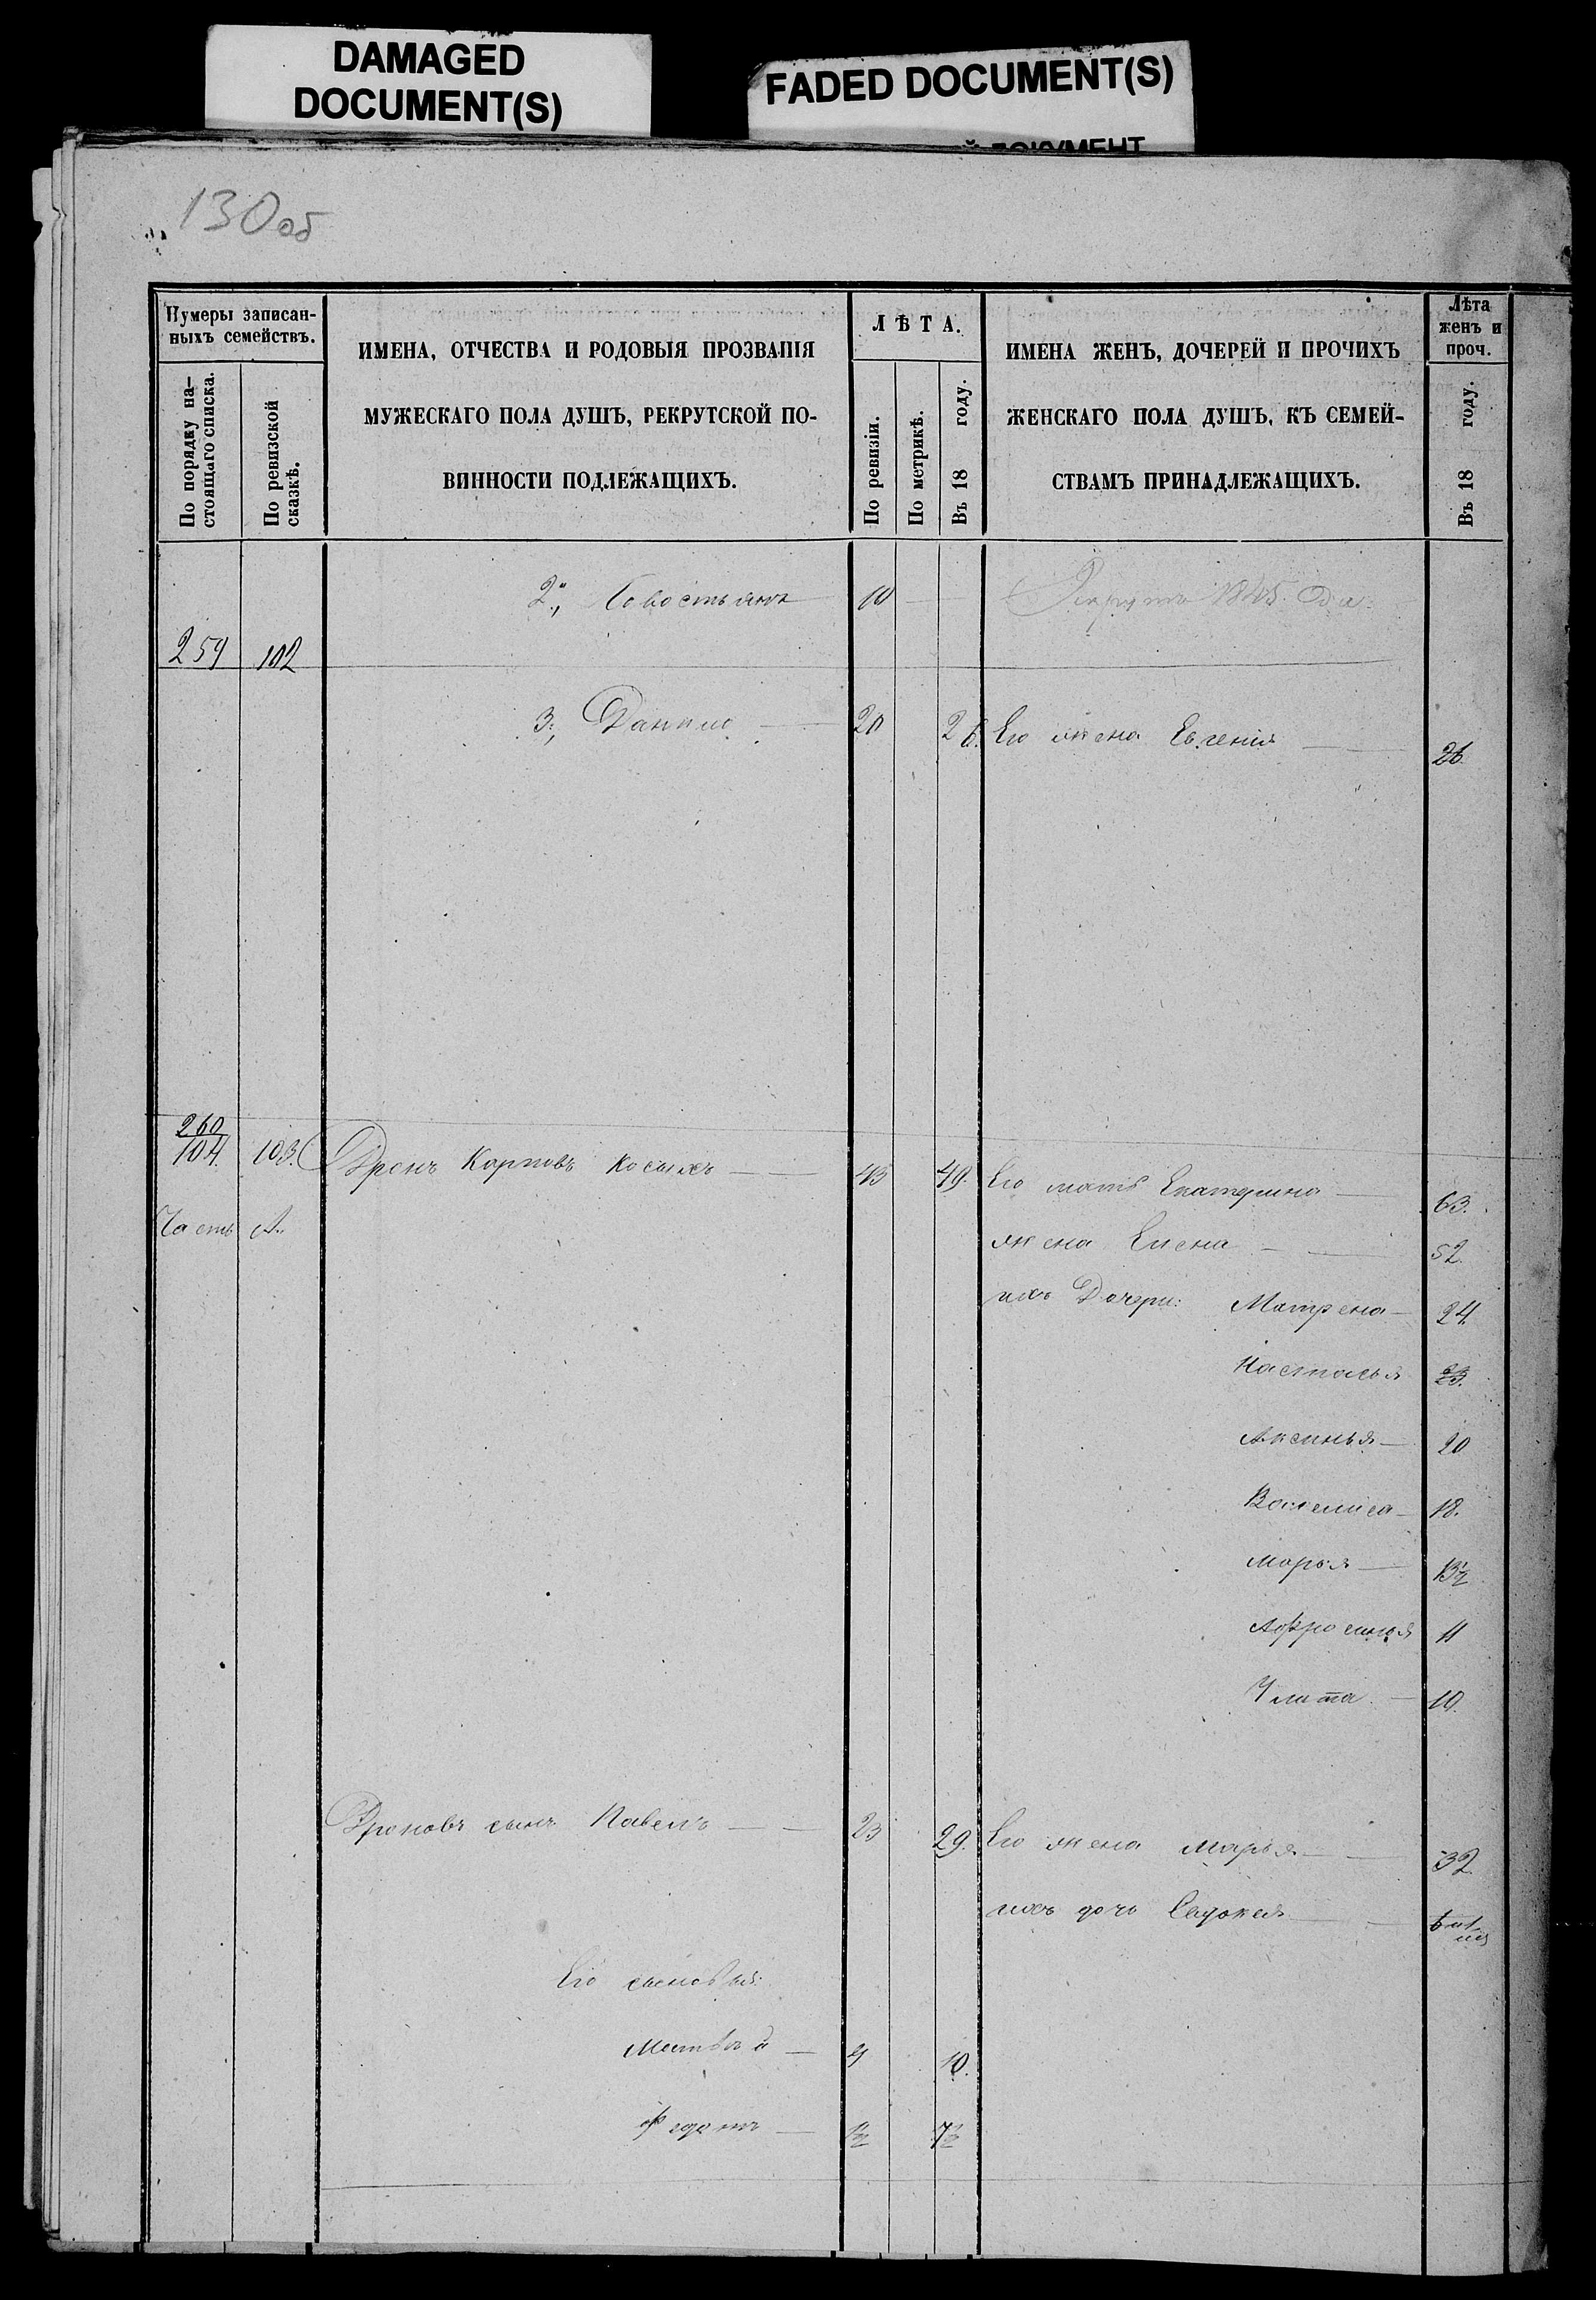 DAMAGED
DOCUMENT(S)
FADED DOCUMENT(S)
130 об
Нумеры записан-
ныхъ семействъ.
По порядку на-
стоящаго списка.
По ревизской
сказкѣ.
ИМЕНА, ОТЧЕСТВА И РОДОВЫЯ ПРОЗВАНІЯ
МУЖЕСКАГО ПОЛА ДУШЪ, РЕКРУТСКОЙ ПО-
ВИННОСТИ ПОДЛЕЖАЩИХЪ.
ЛѢТА.
По ревизіи.
По метрикѣ.
Въ 18 году.
ИМЕНА ЖЕНЪ, ДОЧЕРЕЙ И ПРОЧИХЪ
ЖЕНСКАГО ПОЛА ДУШЪ, КЪ СЕМЕЙ-
СТВАМЪ ПРИНАДЛЕЖАЩИХЪ.
Лѣта
женъ и
проч.
Въ 18 году.
2, 10
259 102
3, Данило 20 26. Его жена Евгенія 26.
260
104. 103. Дронъ Карповъ Косыхъ 43 49. Его мать Екатерина 63.
Часть А.
жена Елена 52.
ихъ Дочери: Матрена 24
Насталья 23.
Аксинья 20
Василиса 18.
Марья 13½
Афросинья 11
Улита 10.
Дроновъ сынъ Павелъ 23 29. Его жена Марья 32
ихъ дочь Евдокея
Его сыновья:
Матвѣй 4 10.
Федотъ 1½ 7½